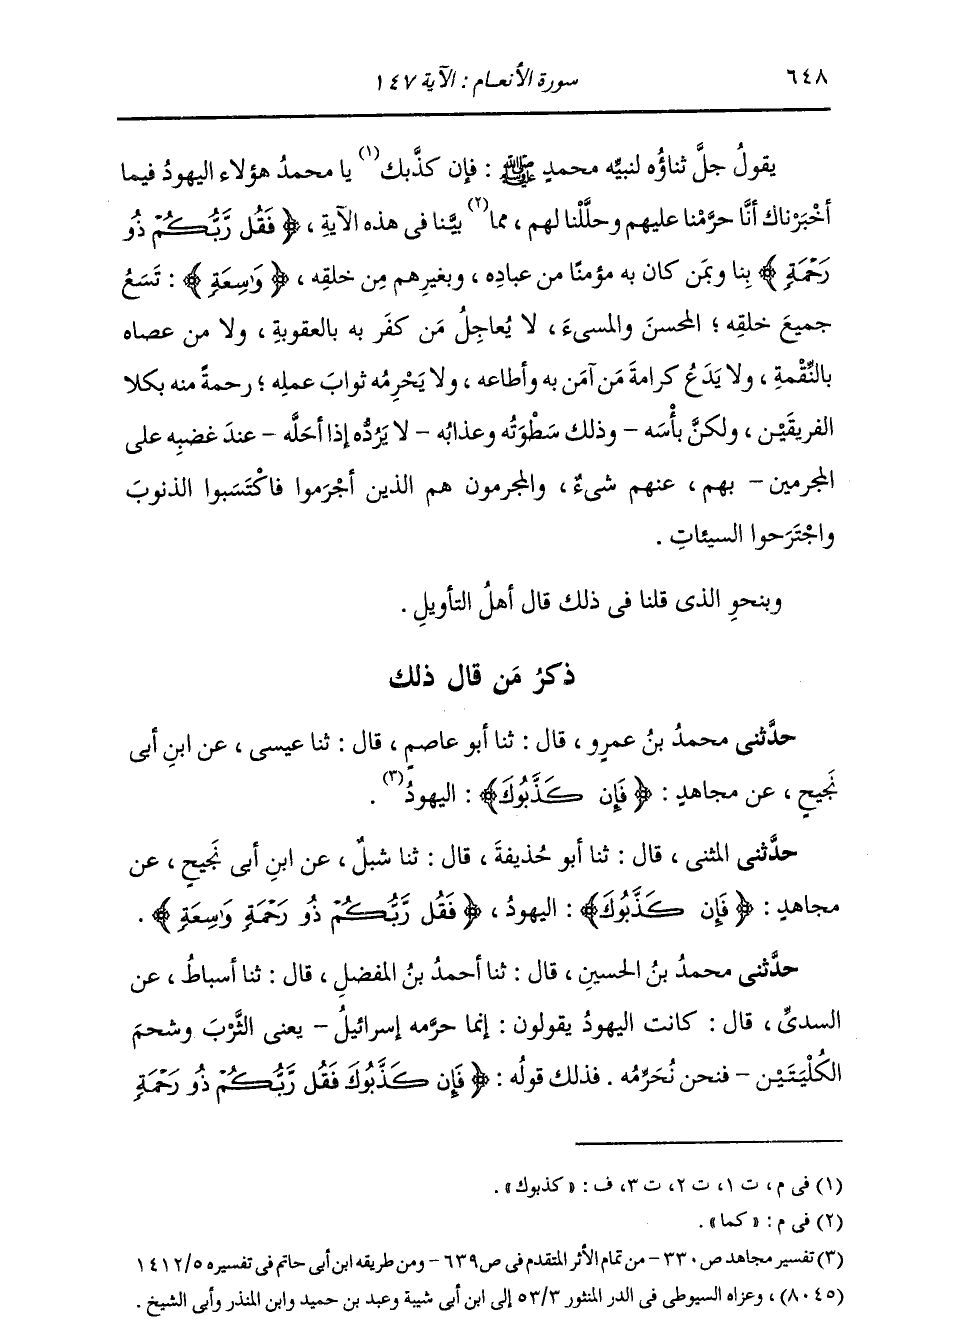 ٦٤٨
سورة الأنعام : الآية ١٤٧
يقولُ جلَّ ثناؤُه لنبيِّه محمدٍ ﷺ : فإن كذَّبك(١) يا محمدُ هؤلاء اليهودُ فيما
أخْبَرْناك أنَّا حرَّمْنا عليهم وحلَّلْنا لهم ، مما(٢) بيَّنا فى هذه الآيةِ ، ﴿ فَقُل رَّبُّكُمْ ذُو
رَحْمَةٍ ﴾ بِنا وبمَن كان به مؤمنًا من عبادِه ، وبغيرِهم مِن خلقِه ، ﴿ وَاسِعَةٍ ﴾ : تَسَعُ
جميعَ خلقِه ؛ المحسنَ والمسىءَ ، لا يُعاجِلُ مَن كفَر به بالعقوبةِ ، ولا من عصاه
بالنِّقْمةِ ، ولا يَدَعُ كرامةَ مَن آمَن به وأطاعه ، ولا يَحْرِمُه ثوابَ عملِه ؛ رحمةً منه بكلا
الفريقَيْن ، ولكنَّ بأْسَه – وذلك سَطْوَتُه وعذابُه – لا يَرُدُّه إذا أحَلَّه – عندَ غضبِه على
المجرمين – بهم ، عنهم شىءٌ ، والمجرمون هم الذين أجْرَموا فاكْتَسَبوا الذنوبَ
واجْتَرَحوا السيئاتِ .
وبنحوِ الذى قلنا فى ذلك قال أهلُ التأويلِ .
ذكرُ مَن قال ذلك
حدَّثنى محمدُ بنُ عمرٍو ، قال : ثنا أبو عاصمٍ ، قال : ثنا عيسى ، عن ابنِ أبى
نَجيحٍ ، عن مجاهدٍ : ﴿ فَإِن كَذَّبُوكَ ﴾ : اليهودُ(٣) .
حدَّثنى المثنى ، قال : ثنا أبو حُذيفةَ ، قال : ثنا شبلٌ ، عن ابنِ أبى نَجيحٍ ، عن
مجاهدٍ : ﴿ فَإِن كَذَّبُوكَ ﴾ : اليهودُ ، ﴿ فَقُل رَّبُّكُمْ ذُو رَحْمَةٍ وَاسِعَةٍ ﴾ .
حدَّثنى محمدُ بنُ الحسينِ ، قال : ثنا أحمدُ بنُ المفضلِ ، قال : ثنا أسباطُ ، عن
السدىِّ ، قال : كانت اليهودُ يقولون : إنما حرَّمه إسرائيلُ – يعنى الثَّرْبَ وشحمَ
الكُلْيَتَيْن – فنحن نُحَرِّمُه . فذلك قولُه : ﴿ فَإِن كَذَّبُوكَ فَقُل رَّبُّكُمْ ذُو رَحْمَةٍ
(١) فى م ، ت ١، ت ٢، ت ٣، ف : « كذبوك » .
(٢) فى م : « كما » .
(٣) تفسير مجاهد ص ٣٣٠ – من تمام الأثر المتقدم فى ص ٦٣٩ – ومن طريقه ابن أبى حاتم فى تفسيره ١٤١٢/٥
(٨٠٤٥) ، وعزاه السيوطى فى الدر المنثور ٥٣/٣ إلى ابن أبى شيبة وعبد بن حميد وابن المنذر وأبى الشيخ .